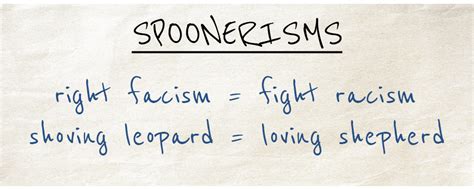 SPOONERISMS
right facism = fight racism
shoving leopard = loving shepherd